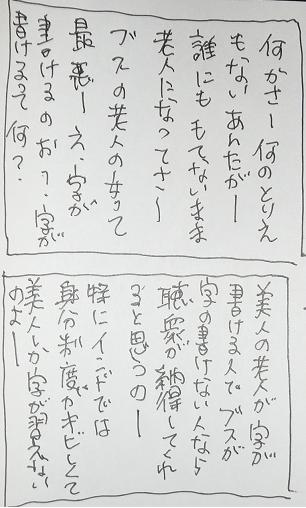 何かさー何のとりえ
もないあんたがー
誰にももてないまま
老人になってさ〜
ブスの老人の女って
最悪ーえ、字が
書けるのお？、字が
書けるって何？
美人の老人が字が
書ける人で ブスが
字の書けない人なら
聴衆が納得してくれ
ると思うのー
特にインドでは
身分制度がキビしくて
美人しか字が習えない
のよー